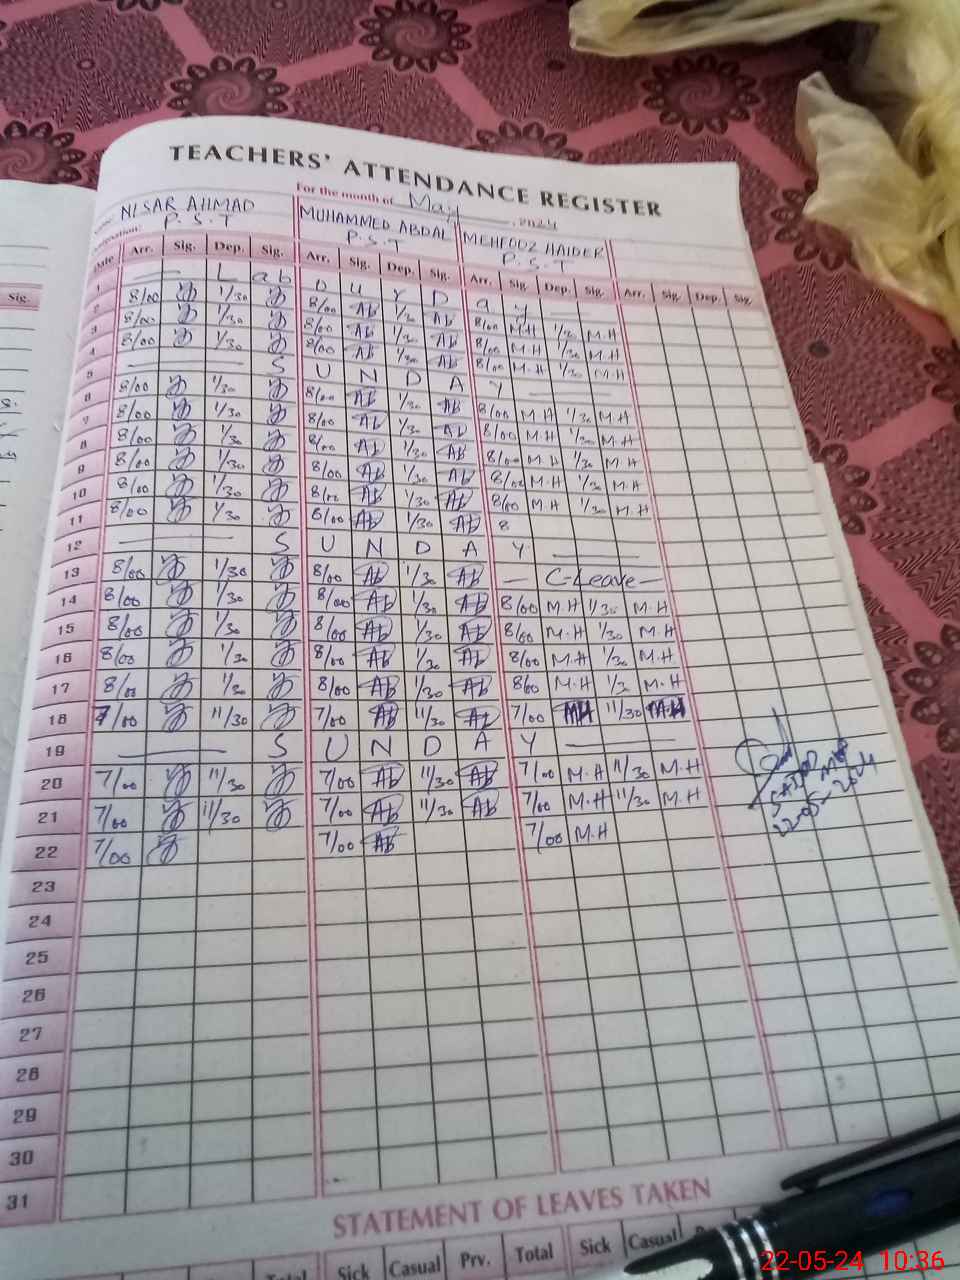 TEACHERS' ATTENDANCE REGISTER
For the month of May, 2024
NISAR AHMAD MUHAMMED ABDAL MEHFOOZ HAIDER
P.S.T P.S.T P.S.T
Date Arr. Sig. Dep. Sig. Arr. Sig. Dep. Sig. Arr. Sig. Dep. Sig. Arr. Sig. Dep. Sig.
Sig.
1 L a b o u r D a y
2 8/00 1/30 8/00 Ab 1/30 Ab 8/00 M.H 1/30 M.H
3 8/00 1/30 8/00 Ab 1/30 Ab 8/00 M.H 1/30 M.H
4 8/00 1/30 8/00 Ab 1/30 Ab 8/00 M.H 1/30 M.H
5 S U N D A Y
6 8/00 1/30 8/00 Ab 1/30 Ab 8/00 M.H 1/30 M.H
7 8/00 1/30 8/00 Ab 1/30 Ab 8/00 M.H 1/30 M.H
8 8/00 1/30 8/00 Ab 1/30 Ab 8/00 M.H 1/30 M.H
9 8/00 1/30 8/00 Ab 1/30 Ab 8/00 M.H 1/30 M.H
10 8/00 1/30 8/00 Ab 1/30 Ab 8/00 M.H 1/30 M.H
11 8/00 1/30 8/00 Ab 1/30 Ab 8
12 S U N D A Y
13 8/00 1/30 8/00 Ab 1/30 Ab C-Leave
14 8/00 1/30 8/00 Ab 1/30 Ab 8/00 M.H 1/30 M.H
15 8/00 1/30 8/00 Ab 1/30 Ab 8/00 M.H 1/30 M.H
16 8/00 1/30 8/00 Ab 1/30 Ab 8/00 M.H 1/30 M.H
17 8/00 1/30 8/00 Ab 1/30 Ab 8/00 M.H 1/30 M.H
18 7/00 11/30 7/00 Ab 11/30 Ab 7/00 MH 11/30 MH
19 S U N D A Y
20 7/00 11/30 7/00 Ab 11/30 Ab 7/00 M.H 11/30 M.H
21 7/00 11/30 7/00 Ab 11/30 Ab 7/00 M.H 11/30 M.H
22 7/00 7/00 Ab 7/00 M.H
22-05-2024
23
24
25
26
27
28
29
30
31
STATEMENT OF LEAVES TAKEN
Total Sick Casual Prv. Total Sick Casual
22-05-24 10:36